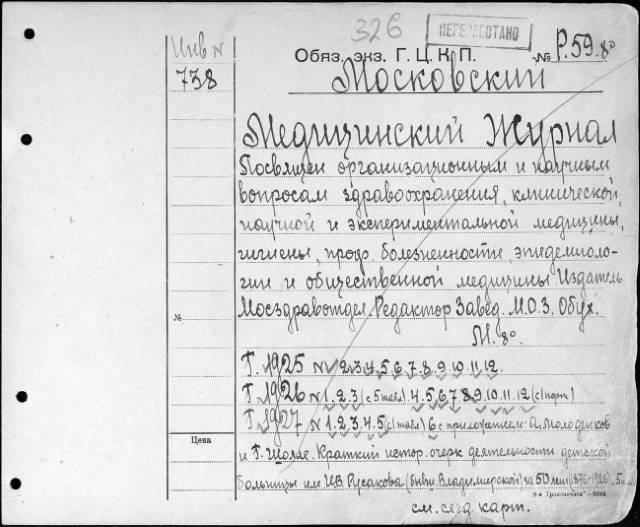 326
ПЕРЕРАБОТАНО
Инв N
738
Обяз. экз. Г. Ц. К. П. № Р.59. 8°
Московский
Медицинский Журнал
Посвящен организационным и научным
вопросам здравоохранения, клинической,
научной и экспериментальной медицины,
гигиены, проф. болезненности, эпидемиоло-
гии и общественной медицины. Издатель
Мосздравотдел. Редактор Завед. М.О.З. Обух.
М. 8°
№
Г. 1925 N 1.2.3.4.5.6.7.8.9.10.11.12.
Г. 1926 N 1.2.3 (с 5 табл.) 4.5.6.7.8.9.10.11.12 (с 1 порт.)
Г. 1927 N 1.2.3.4.5 (с 1 табл.) 6 с приложением: А. Молоденков
Цена
и Г. Шолле. Краткий истор. очерк деятельности детской
больницы им. И.В. Русакова (бывш. Владимирской) за 50 лет (1876-1926).
см. след. карт.